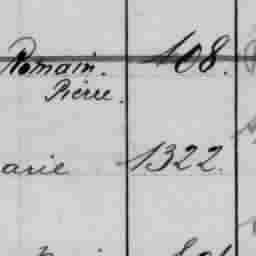 Romain. 408.
Pierre.
arie 1322.